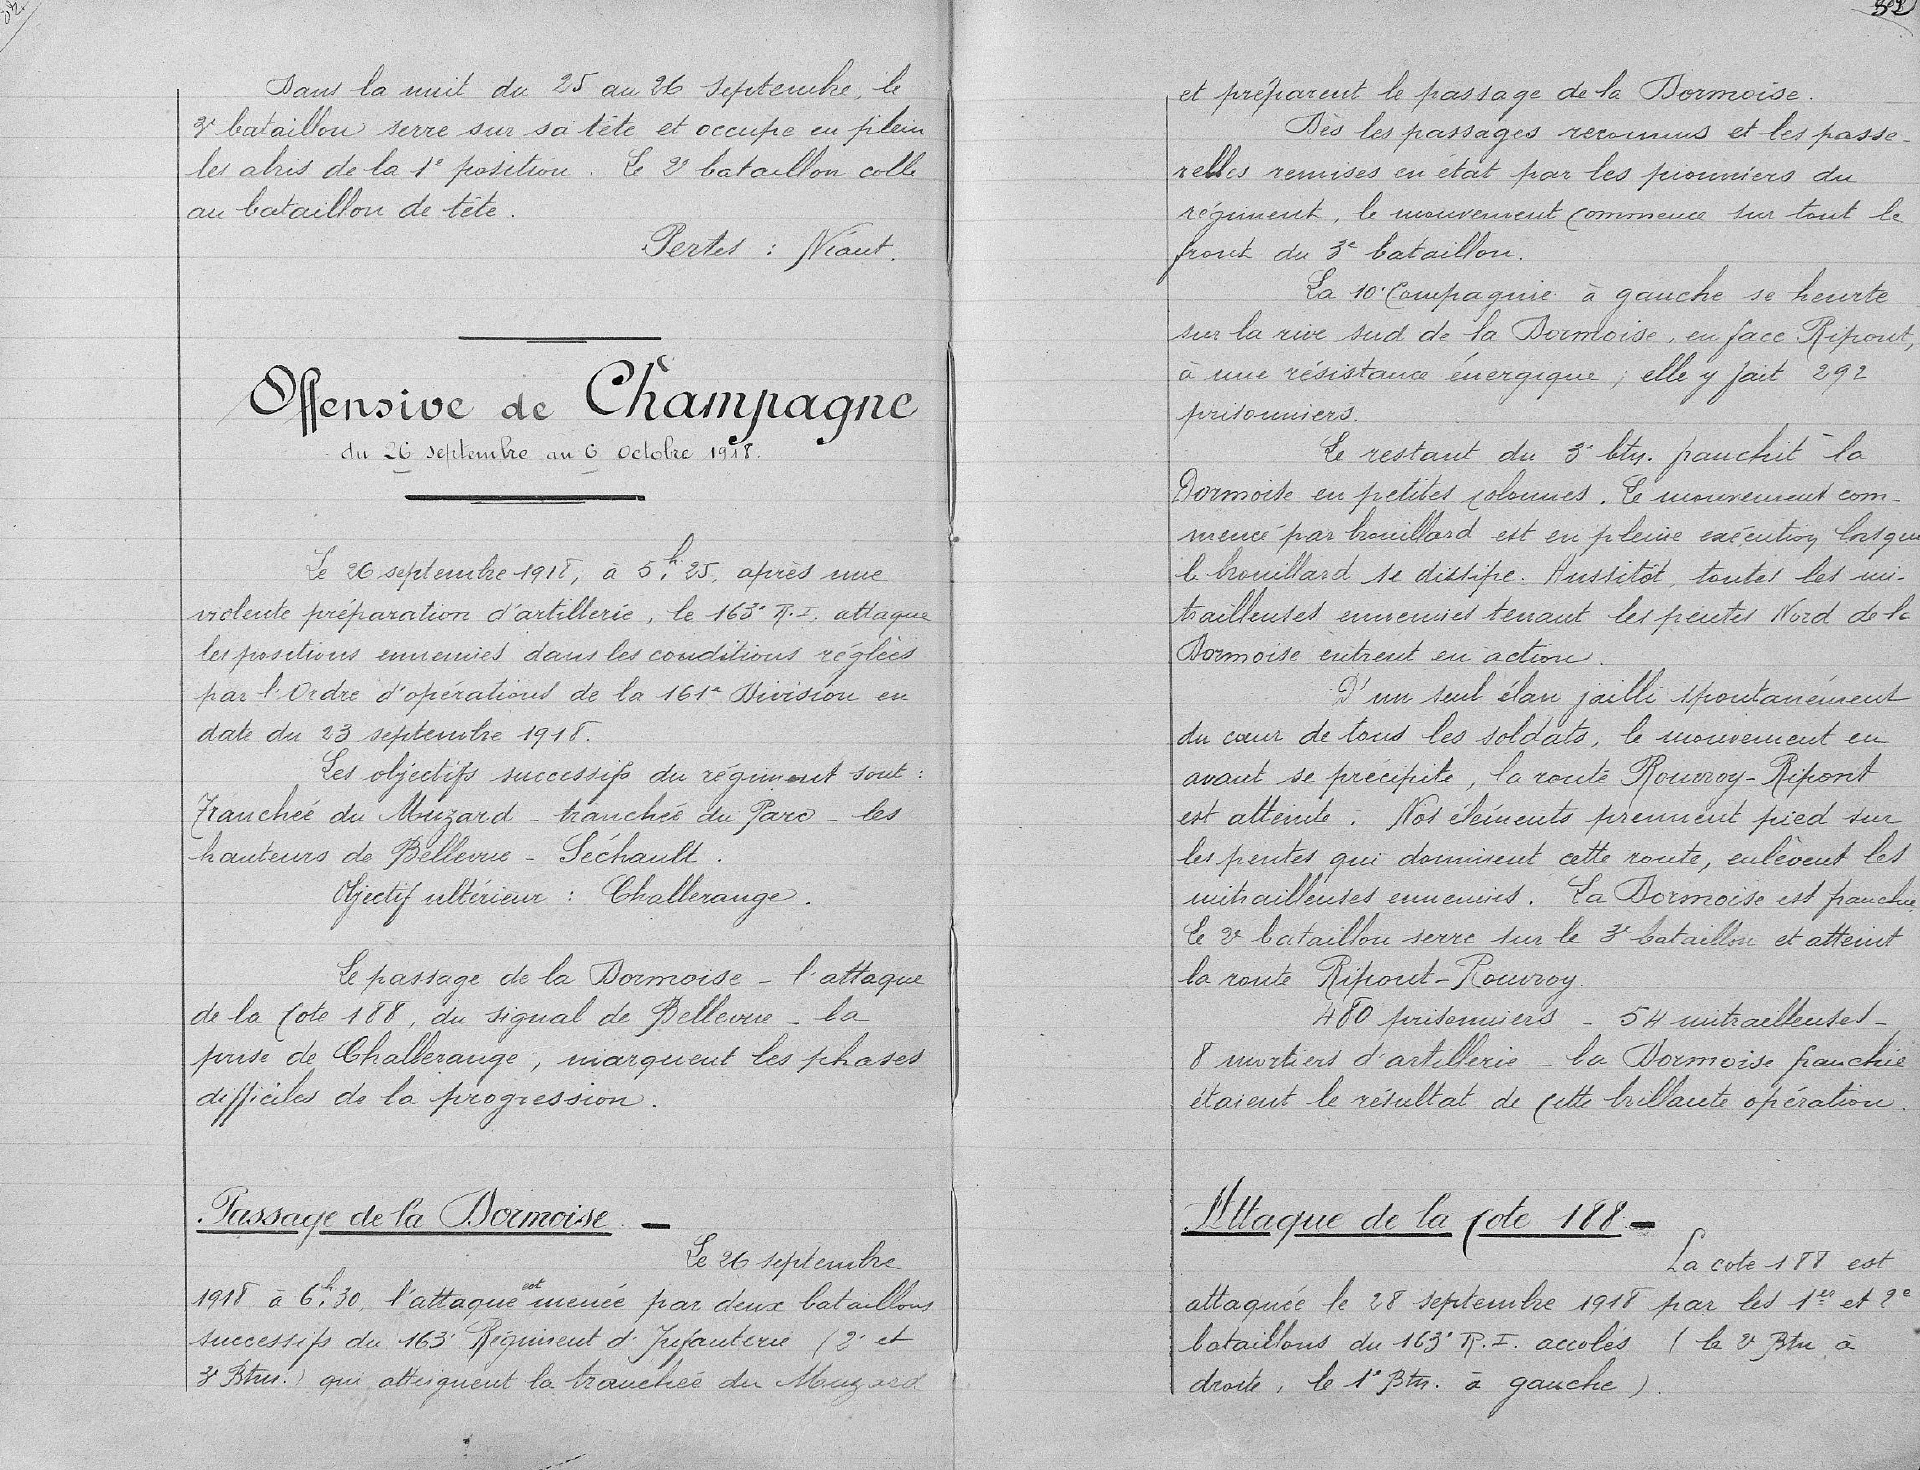 Dans la nuit du 25 au 26 septembre, le
3e bataillon serre sur sa tête et occupe en plein
les abris de la 1e position. Le 2e bataillon colle
au bataillon de tête.
Pertes : Néant.
Offensive de Champagne
du 26 septembre au 6 Octobre 1918.
Le 26 septembre 1918, à 5h.25, après une
violente préparation d'artillerie, le 163e R.I. attaque
les positions ennemies dans les conditions réglées
par l'Ordre d'opérations de la 161e Division en
date du 23 septembre 1918.
Les objectifs successifs du régiment sont :
Tranchée du Muzard - tranchée du Parc - les
hauteurs de Bellevue - Séchault.
Objectif ultérieur : Challerange.
Le passage de la Dormoise - l'attaque
de la Cote 188, du signal de Bellevue - la
prise de Challerange, marquent les phases
difficiles de la progression.
Passage de la Dormoise. -
Le 26 septembre
1918 à 6h.30, l'attaque est menée par deux bataillons
successifs du 163e Régiment d'Infanterie (2e et
3e Btns.) qui atteignent la tranchée du Muzard
et préparent le passage de la Dormoise.
Dès les passages reconnus et les passe-
relles remises en état par les pionniers du
régiment, le mouvement commence sur tout le
front du 3e bataillon.
La 10e Compagnie à gauche se heurte
sur la rive sud de la Dormoise, en face Ripont,
à une résistance énergique ; elle y fait 292
prisonniers.
Le restant du 3e btn. franchit la
Dormoise en petites colonnes. Le mouvement com-
mencé par brouillard est en pleine exécution lorsque
le brouillard se dissipe. Aussitôt, toutes les mi-
trailleuses ennemies tenant les pentes Nord de la
Dormoise entrent en action.
D'un seul élan jailli spontanément
du cœur de tous les soldats, le mouvement en
avant se précipite, la route Rouvroy-Ripont
est atteinte. Nos éléments prennent pied sur
les pentes qui dominent cette route, enlèvent les
mitrailleuses ennemies. La Dormoise est franchie.
Le 2e bataillon serre sur le 3e bataillon et atteint
la route Ripont-Rouvroy.
480 prisonniers - 54 mitrailleuses -
8 mortiers d'artillerie - la Dormoise franchie
étaient le résultat de cette brillante opération.
Attaque de la Cote 188. -
La cote 188 est
attaquée le 28 septembre 1918 par les 1er et 2e
bataillons du 163e R.I. accolés (le 2e Btn à
droite, le 1e Btn. à gauche).